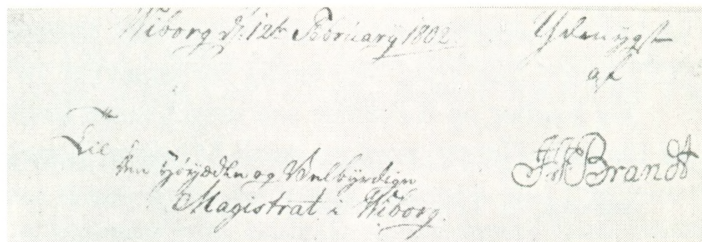 Wiborg d. 12te February 1802
Ydmygst
af
Til
den Høyædle og Velbyrdige
Magistrat i Wiborg.
Brandt